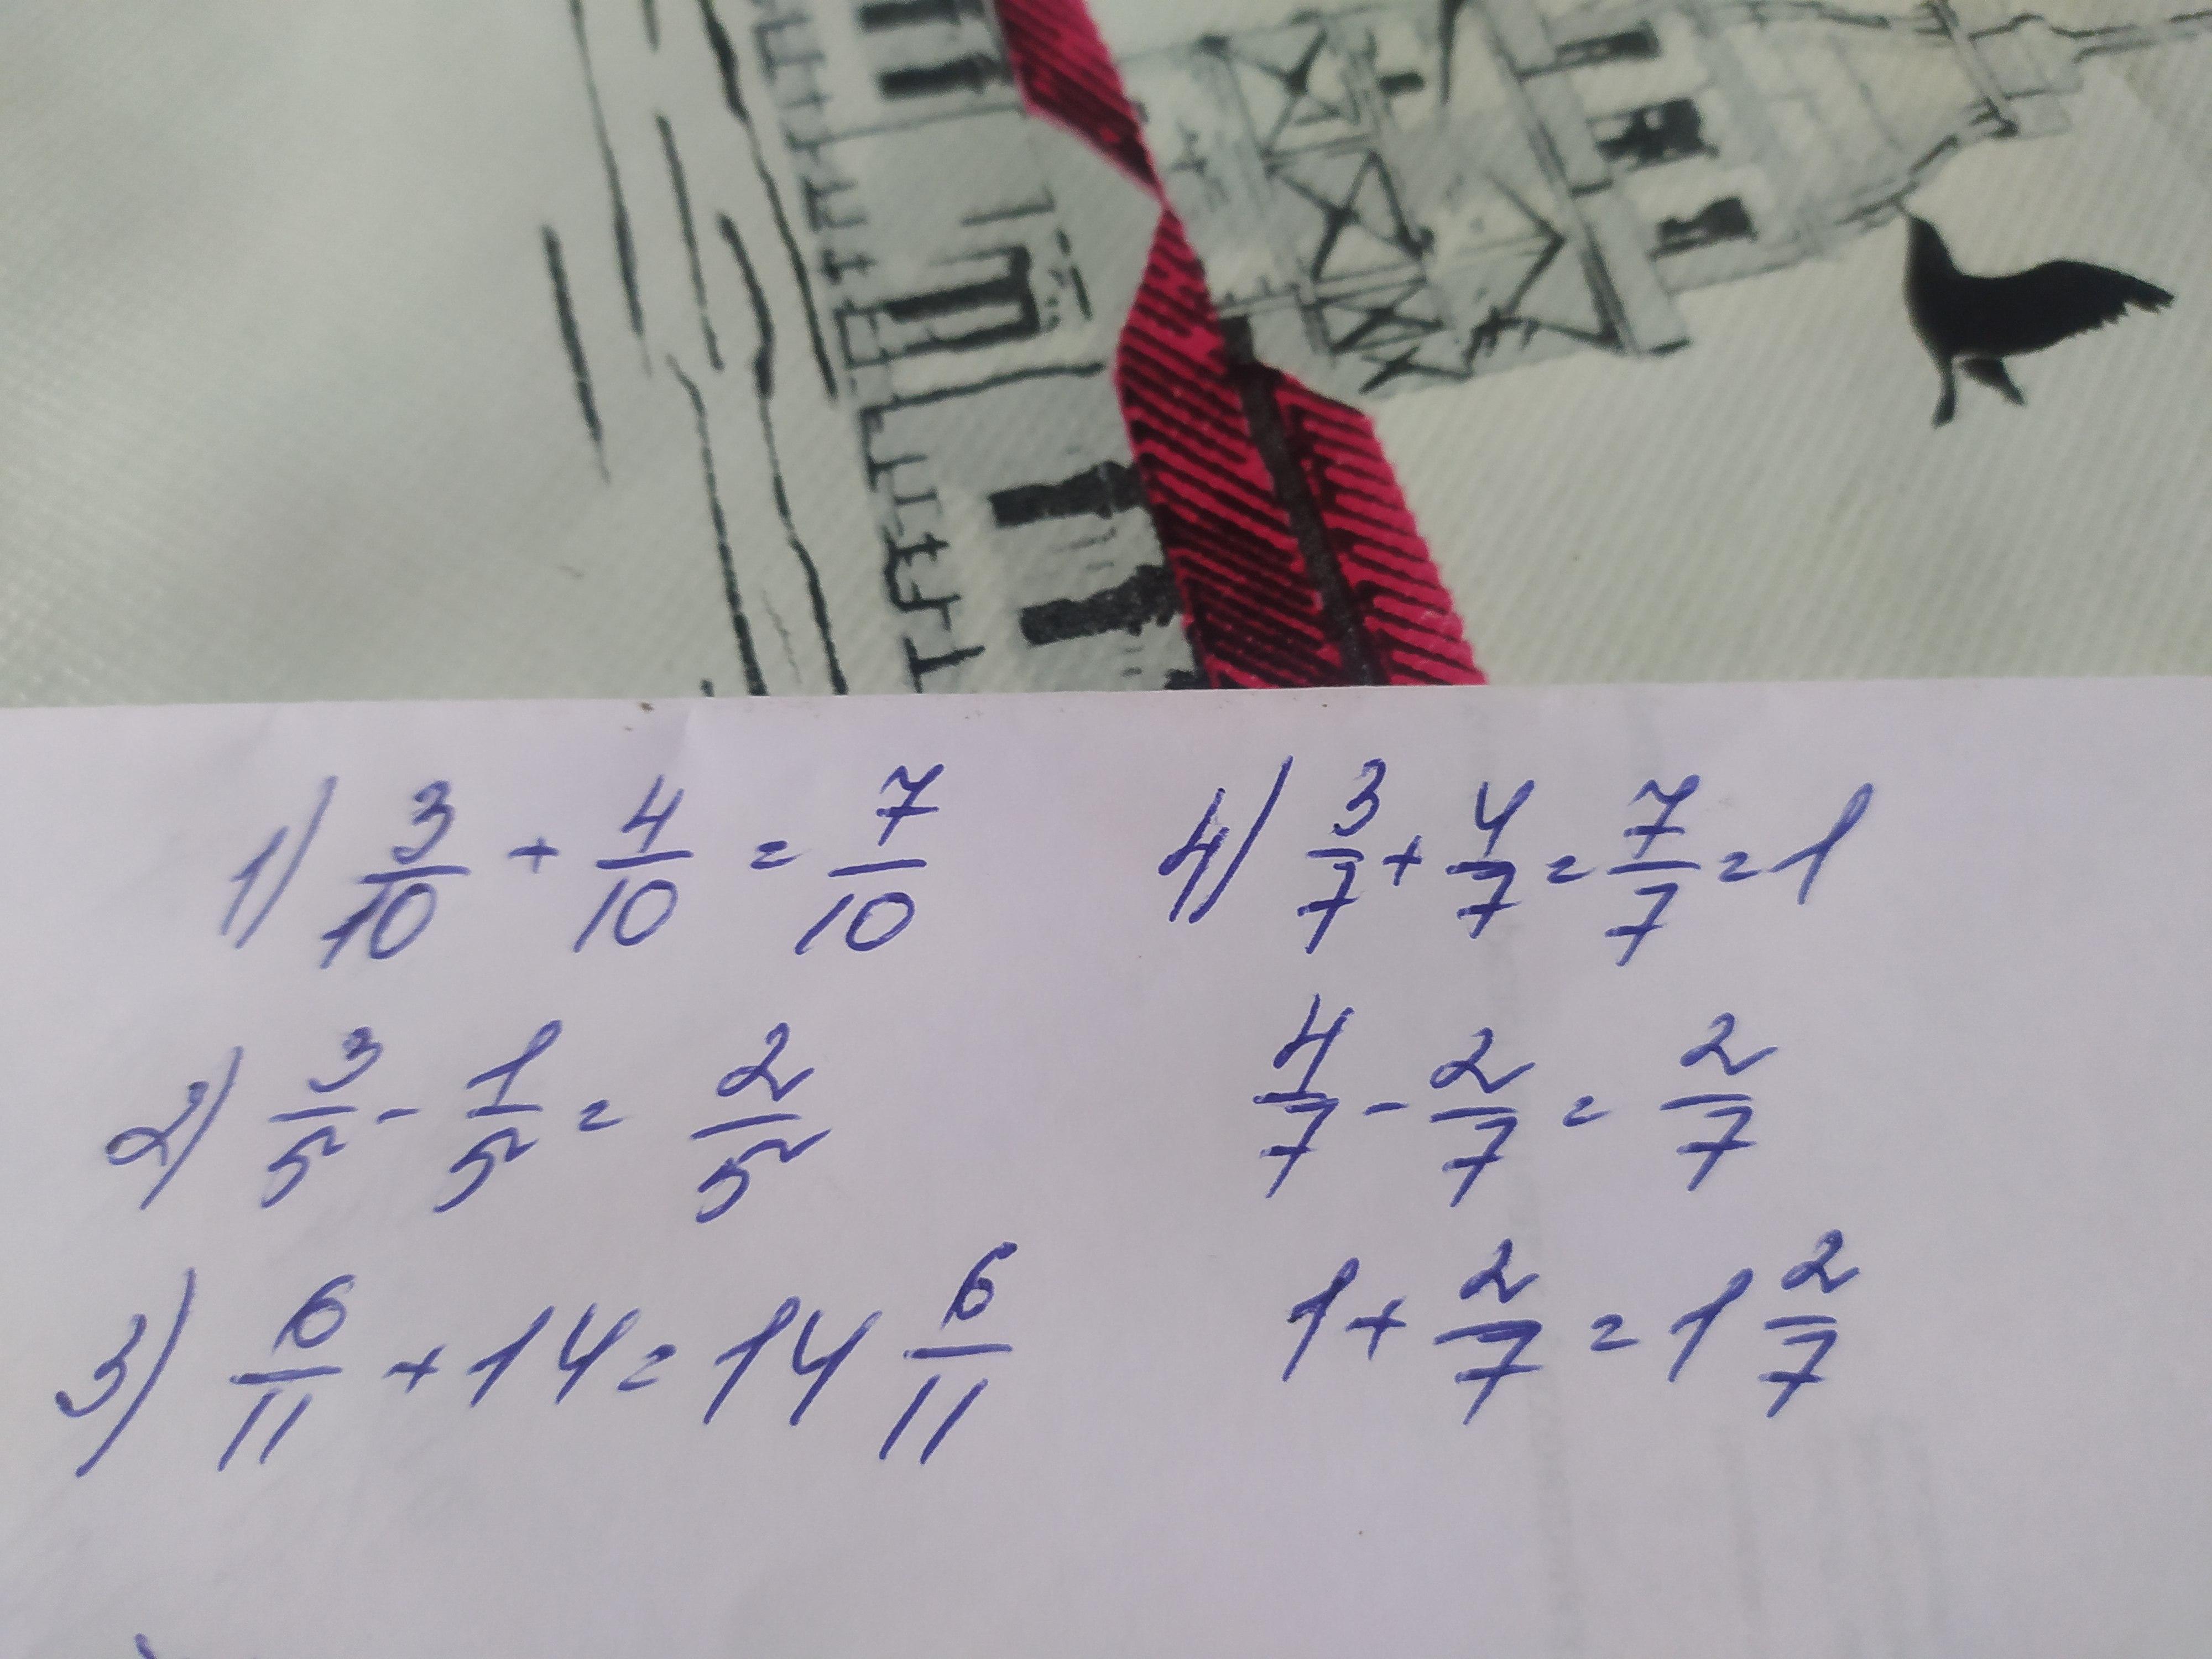 1) 3/10 + 4/10 = 7/10
2) 3/5 - 1/5 = 2/5
3) 6/11 + 14 = 14 6/11
4) 3/7 + 4/7 = 7/7 = 1
4/7 - 2/7 = 2/7
1 + 2/7 = 1 2/7